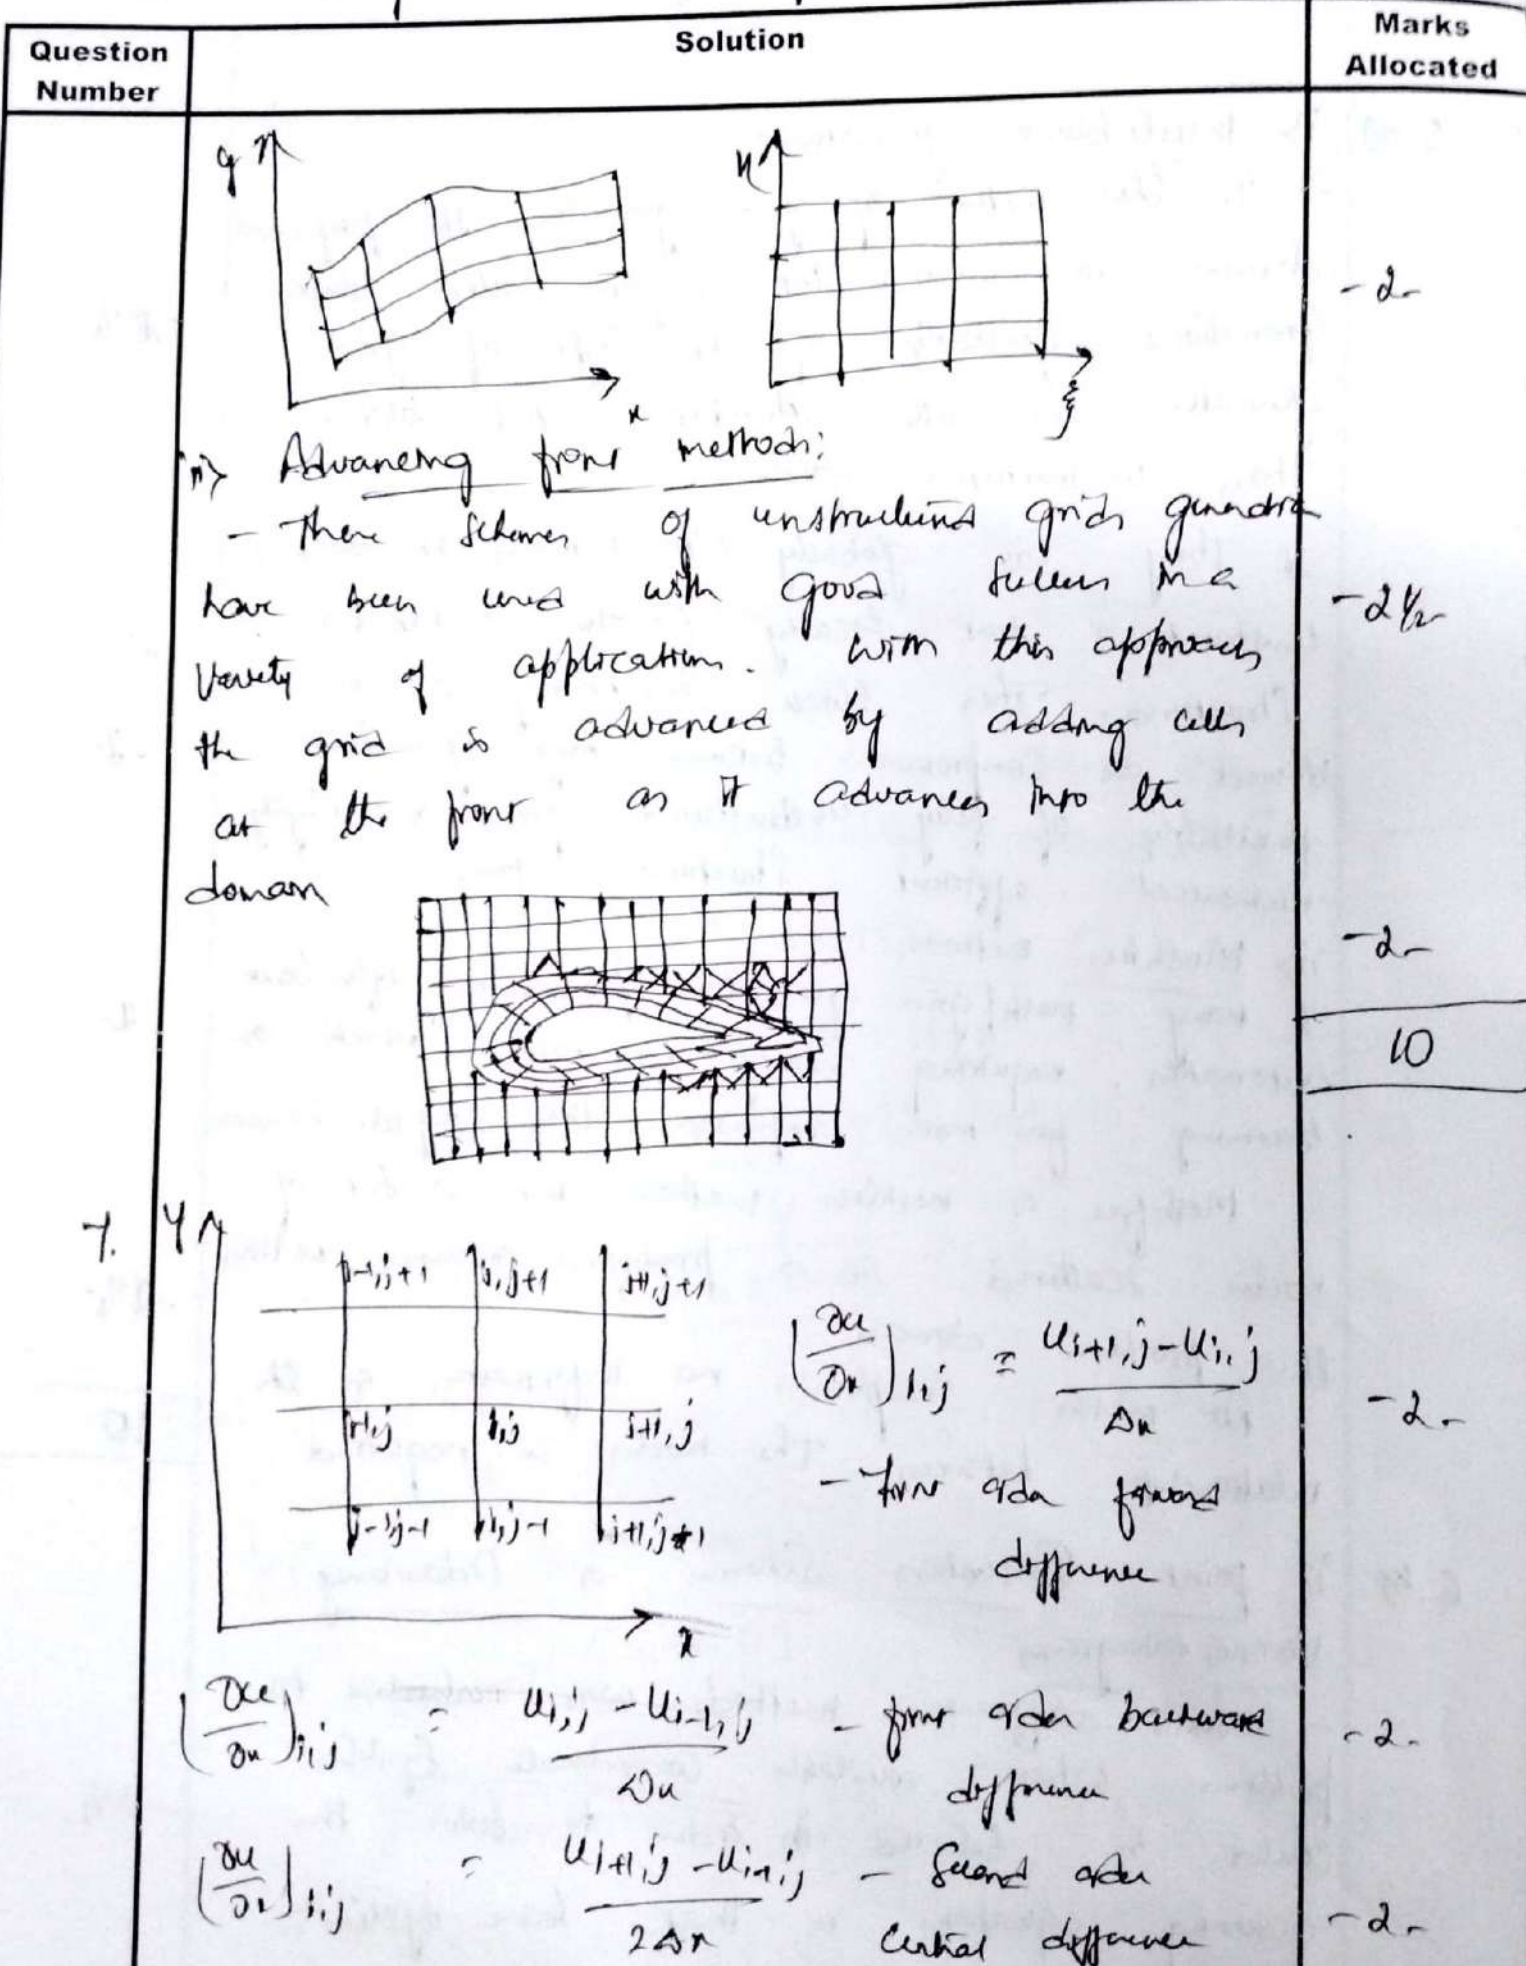 Question Number
Solution
Marks Allocated
y
x
η
ξ
- 2 -
ii> Advancing front methods:
- These schemes of unstructured grids generation
have been used with good success in a
- 2 1/2 -
variety of application. With this approach
the grid is advanced by adding cells
at the front as it advances into the
domain
- 2 -
10
7.
y
i-1,j+1 i,j+1 i+1,j+1
i-1,j i,j i+1,j
i-1,j-1 i,j-1 i+1,j-1
x
(∂u/∂x)i,j = ui+1,j - ui,j / Δx
- 2 -
- First order forward
difference
(∂u/∂x)i,j = ui,j - ui-1,j / Δx - first order backward
difference
- 2 -
(∂u/∂x)i,j = ui+1,j - ui-1,j / 2Δx - Second order
Central difference
- 2 -